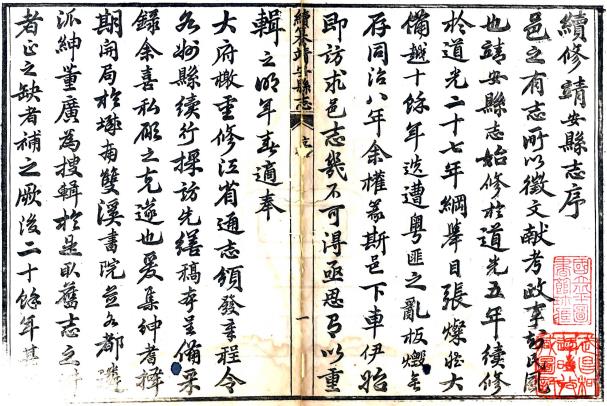 續修靖安縣志序
邑之有志所以徵文献考政事
也靖安縣志始修於道光五年續修
於道光二十七年綱舉目張燦然大
備越十餘年迭遭粤匪之亂板燬無
存同治八年余權篆斯邑下車伊始
即訪求邑志幾不可得亟思有以重
輯之明年春適奉
大府檄重修江省通志頒發章程令
各州縣續行採訪先繕稿本呈備采
錄余喜私願之克遂也爰集紳耆擇
期開局於城南雙溪書院並各都
派紳董廣為搜輯於是取舊志之
者正之缺者補之厥後二十餘年其
續纂靖安縣志
序
一